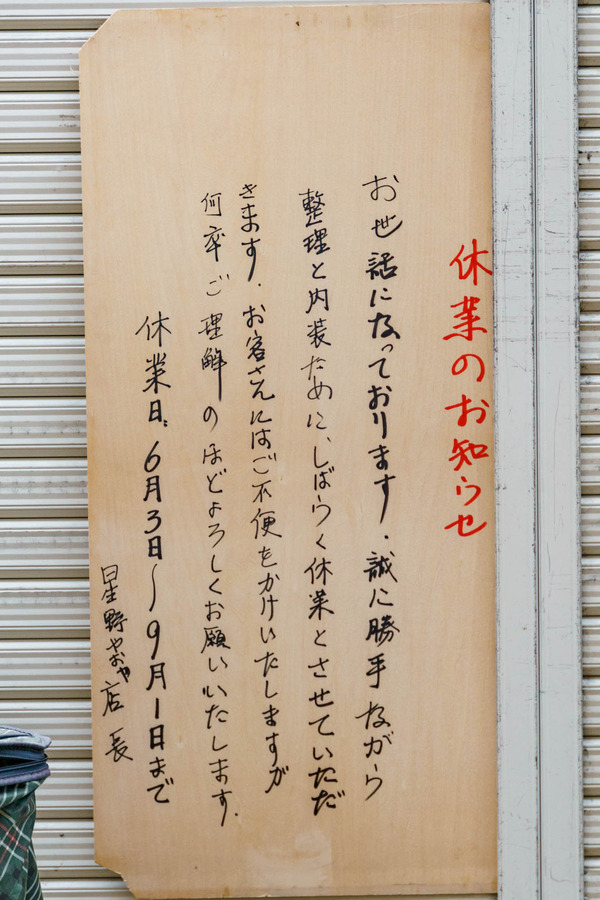 休業のお知らせ
お世話になっております.誠に勝手ながら
整理と内装ために、しばらく休業とさせていただ
きます.お客さんにはご不便をかけいたしますが
何卒ご理解のほどよろしくお願いいたします.
休業日:6月3日〜9月1日まで
星野やおや店長